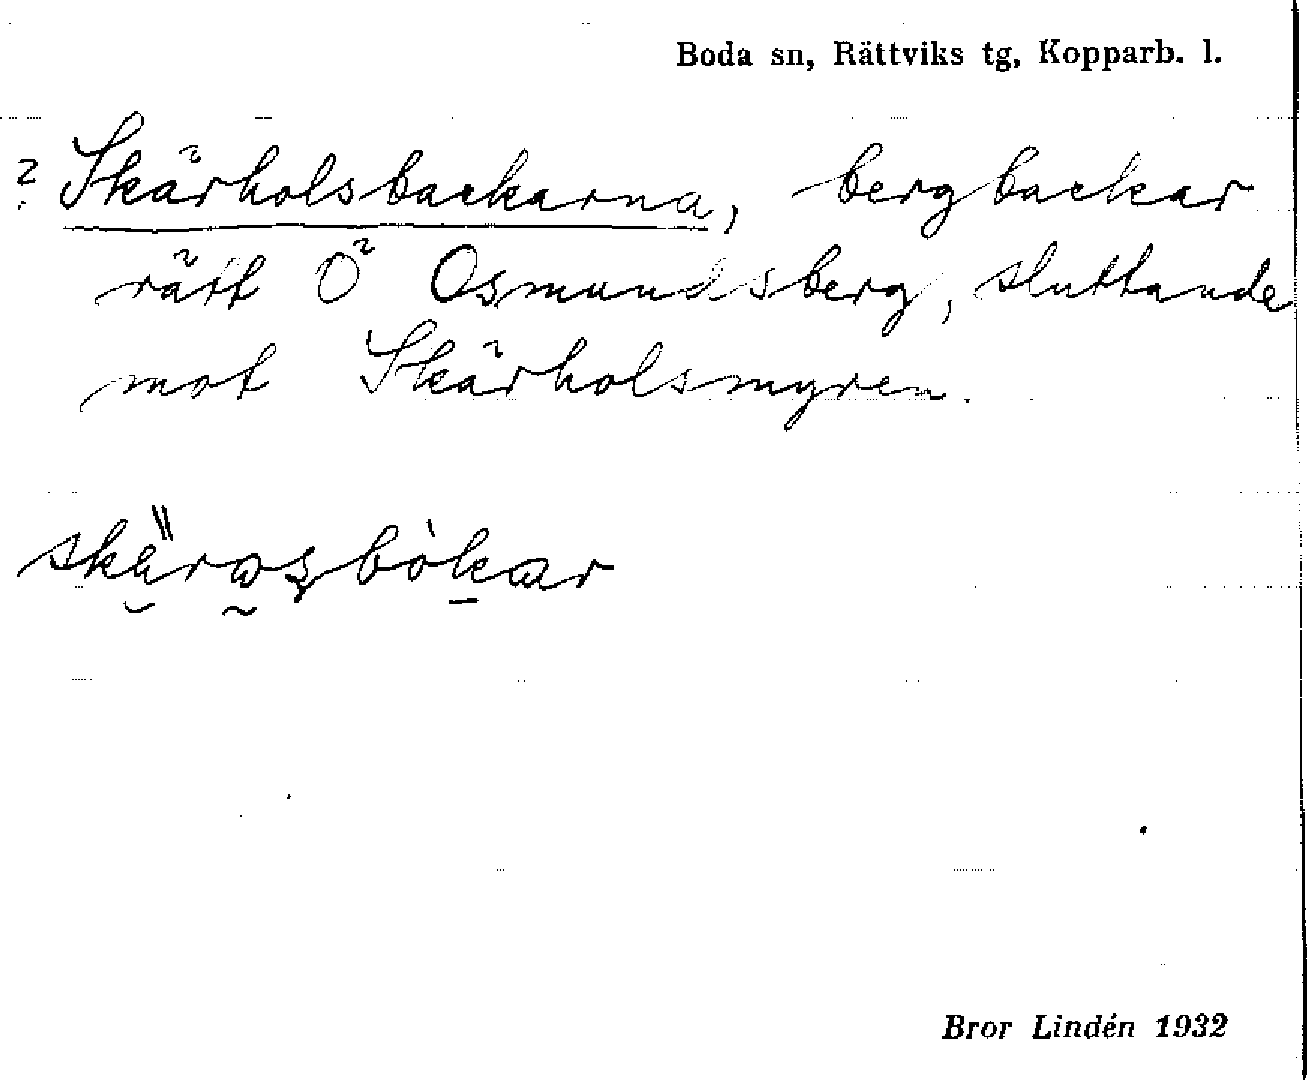 Boda sn, Rättviks tg, Kopparb. l.
? Skärholsbackarna, bergbackar
rätt Ö Osmundsberg, sluttande
mot Skärholsmyren.
skärosbòkar
Bror Lindén 1932